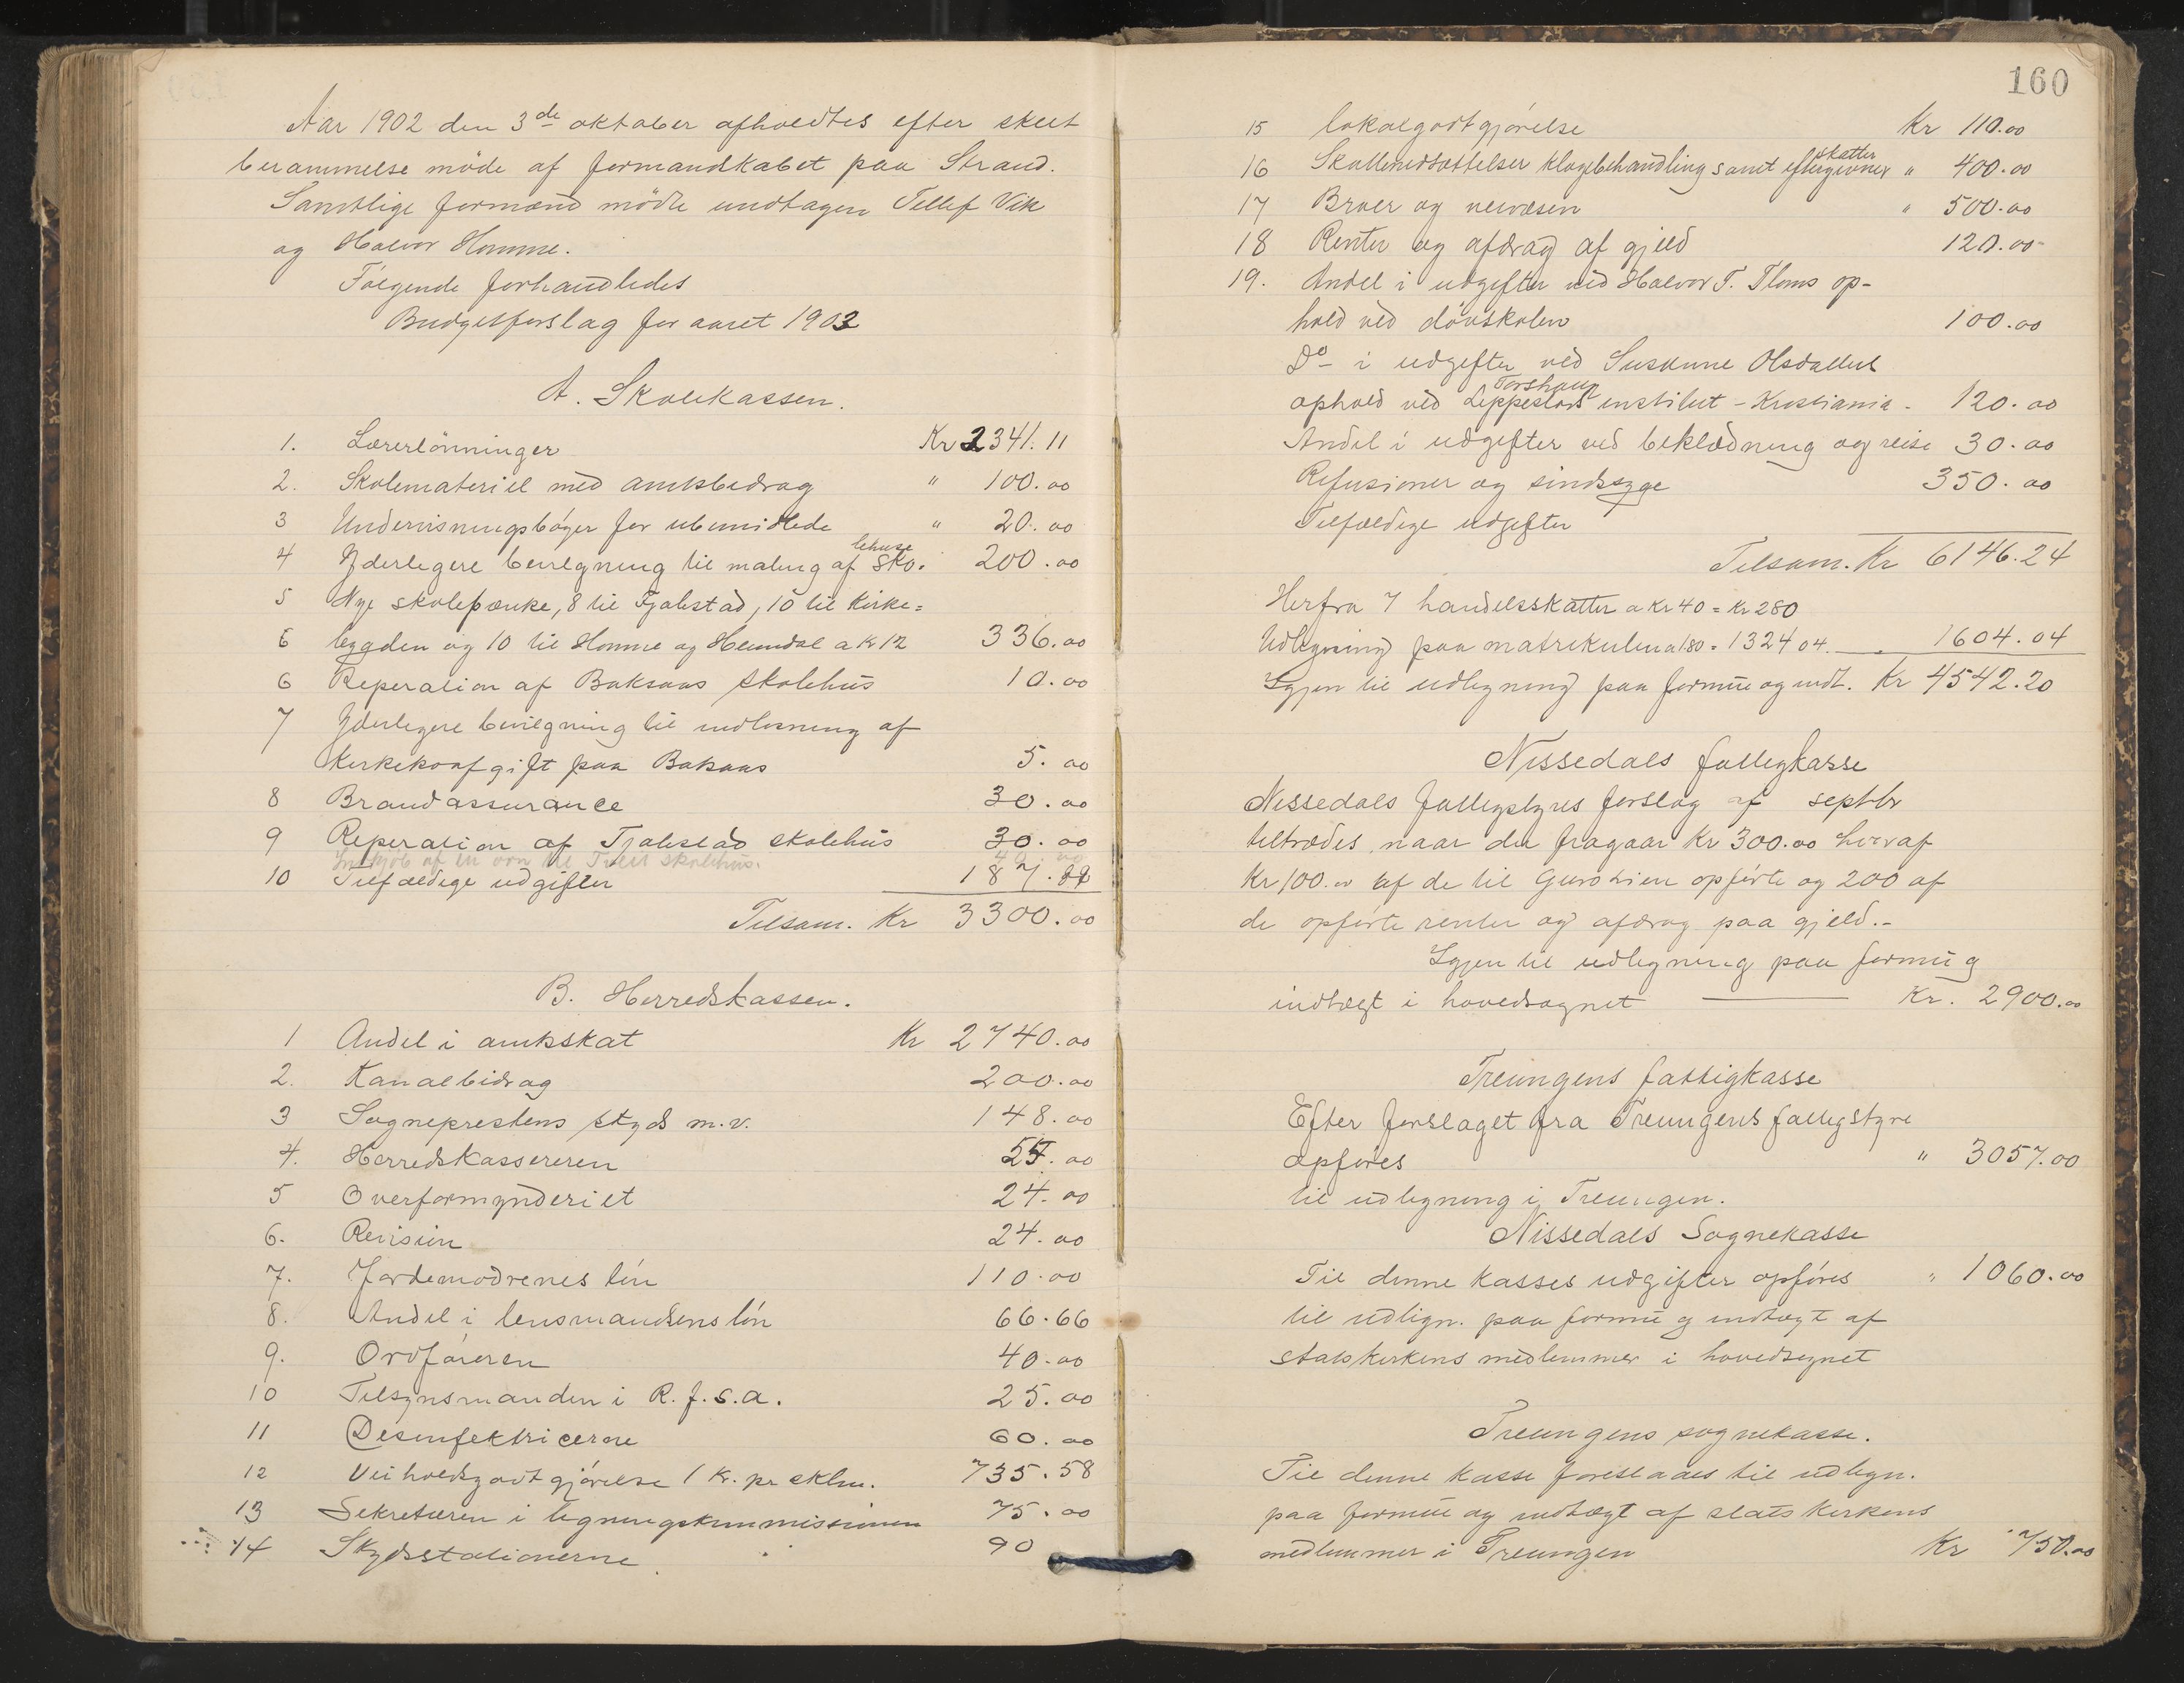 Aar 1902 den 3de oktober afholdtes efter skeet
berammelse möde af formandskabet paa Strand.
Samtlige formænd mödte undtagen Tellef Vik
og Halvor Homme.
Følgende forhandledes
Budgetforslag for aaret 1903
A. Skolekassen.
1. Lærerlönninger Kr 2341.11
2. Skolemateriel med amtsbidrag " 100.00
3 Undervisningsbøger for ubemidlede " 20.00
4 Yderligere bevilgning til maling af skolehuse 200.00
5 Nye skolepænke, 8 til Fjalestad, 10 til Kirke=
6 bygden og 10 til Homme og Heimdal a Kr 12 336.00
6 Reperation af Baksaas skolehus 10.00
7 Yderligere bevilgning til indlösning af
afgift paa Baksaas 5.00
8 Brandassurance 30.00
9 Reperation af Fjalestad skolehus 30.00
Indkjöb af en ovn til Tveit skolehus. 40.00
10 Tilfældige udgifter 187.89
Tilsam. Kr 3300.00
B. Herredskassen.
1 Andel i amtsskat Kr 2740.00
2. Kanalbidrag 200.00
3 Sogneprestens skyds m.v. 148.00
4. Herredskassereren .00
5 Overformynderiet 24.00
6. Revision 24.00
7. Jordemødrenes lön 110.00
8. Andel i lensmandens lön 66.66
9. Ordføreren 40.00
10 Tilsynsmanden i R.f.s.a. 25.00
11 Desinfektricerne 60.00
12 Veiholdsgodtgjörelse 1 Kr. pr sklm. 735.58
13 Sekretæren i ligningskommissionen 75.00
14 Skydsstationerne 90
160
15 Lokalgodtgjörelse Kr 110.00
16 Skattenedsættelser klagebehandling samt eftergivne skatter " 400.00
17 Broer og veivæsen " 500.00
18 Renter og afdrag af gjeld 120.00
19. Andel i udgifter ved Halvor T. Floms op-
hold ved dövskolen 100.00
Do i udgifter ved Susanne Olsdatters
ophold ved Torshaug institut - Kristiania - 120.00
Andel i udgifter ved beklædning og reise 30.00
Refusioner og sindssyge 350.00
Tilfældige udgifter
Tilsam. Kr 6146.24
Herfra 7 handelsskatter a Kr 40 = Kr 280
Udligning paa matrikulen a 180 = 1324 04. " 1604.04
Igjen til udligning paa formue og indt. Kr 4542.20
Nissedals fattigkasse
Nissedals fattigstyres forslag af septbr
tiltrædes, naar der fragaar Kr 300.00 hvoraf
Kr 100.00 af de til opförte og 200 af
de opförte renter og afdrag paa gjeld.-
Igjen til udligning paa formue og
indtægt i hovedsognet Kr. 2900.00
Treungens fattigkasse
Efter forslaget fra Treungens fattigstyre
opföres " 3057.00
til udligning i Treungen.
Nissedals Sognekasse
Til denne kasses udgifter opföres " 1060.00
til udlign. paa formue og indtægt af
statskirkens medlemmer i hovedsognet
Treungens sognekasse.
Til denne kasse foreslaaes til udlign.
paa formue og indtægt af statskirkens
medlemmer i Treungen Kr 750.00